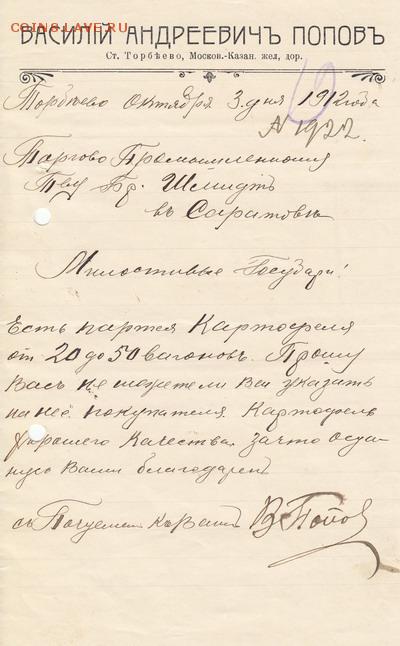 COINS.LAVE.RU
ВАСИЛІЙ АНДРЕЕВИЧЪ ПОПОВЪ
Ст. Торбѣево, Москов.-Казан. жел. дор.
Торбѣево Октября 3 дня 1912 года
№ 1922.
Торгово Промышленноия
Тву Бр. Шмидтъ
въ Саратовѣ
Милостивые Государи!
Есть партея Картофеля
от 20 до 50 вагоновъ. Прошу
Васъ не можетели Вы указать
на неё покупателя. Картофель
хорошего Качества. За что оста-
нусь Вами благодаренъ
съ Почтением къ Вамъ В Попов